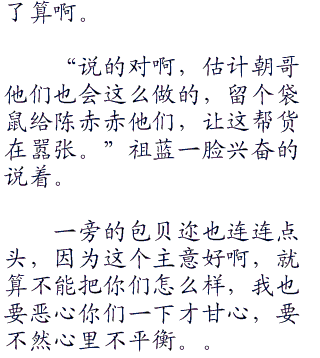 了算啊。
“说的对啊，估计朝哥
他们也会这么做的，留个袋
鼠给陈赤赤他们，让这帮货
在嚣张。”祖蓝一脸兴奋的
说着。
一旁的包贝迩也连连点
头，因为这个主意好啊，就
算不能把你们怎么样，我也
要恶心你们一下才甘心，要
不然心里不平衡。。